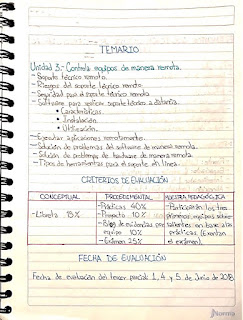 TEMARIO
Unidad 3.- Controla equipos de manera remota.
- Soporte técnico remoto.
- Riesgos del soporte técnico remoto
- Seguridad para el soporte técnico remoto.
- Software para realizar soporte técnico a distancia.
• Características.
• Instalación
• Utilización.
- Ejecutar aplicaciones remotamente.
- Solución de problemas del software de manera remota.
- Solución de problemas de hardware de manera remota.
- Tipos de herramientas para el soporte en línea.
CRITERIOS DE EVALUACIÓN
CONCEPTUAL
- Libreta 15%
PROCEDIMENTAL
- Prácticas 40%
- Proyecto 10%
- Blog de evidencias por
equipo 10%
- Exámen 25%
MUESTRA PEDAGÓGICA
- Participarán los tres
primeros equipos sobre
salientes en base a las
prácticas (Exentan
el exámen).
FECHA DE EVALUACIÓN
Fecha de evaluación del tercer parcial: 1, 4 y 5 de Junio de 2018
Norma